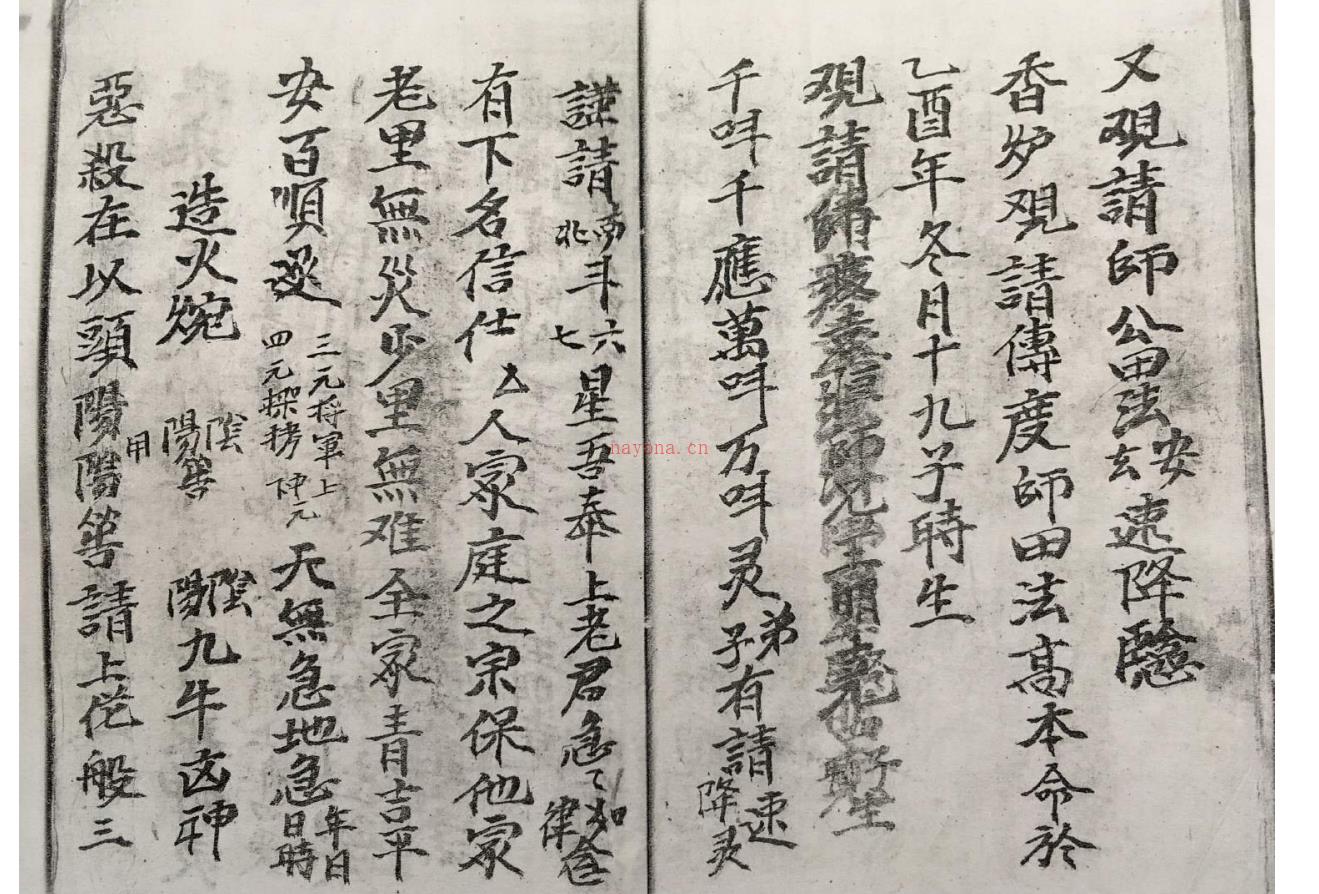 又覌請師公田法安玄速降臨
香炉覌請傳度師田法高本命於
乙酉年冬月十九子時生
覌請師
千叫千應萬叫万叫灵弟子有請速降灵
謹請南北斗六七星吾奉上老君急〻如律令
有下名信仕厶人家庭之宗保他家
老里無災少里無难全家青吉平
安百順遂三元将軍上四元棵栲中元天無急地急年日日時
造火烷陰陽筶陰陽九牛凶神
惡殺在以頭陽用陽筶請上佗般三
nayona.cn